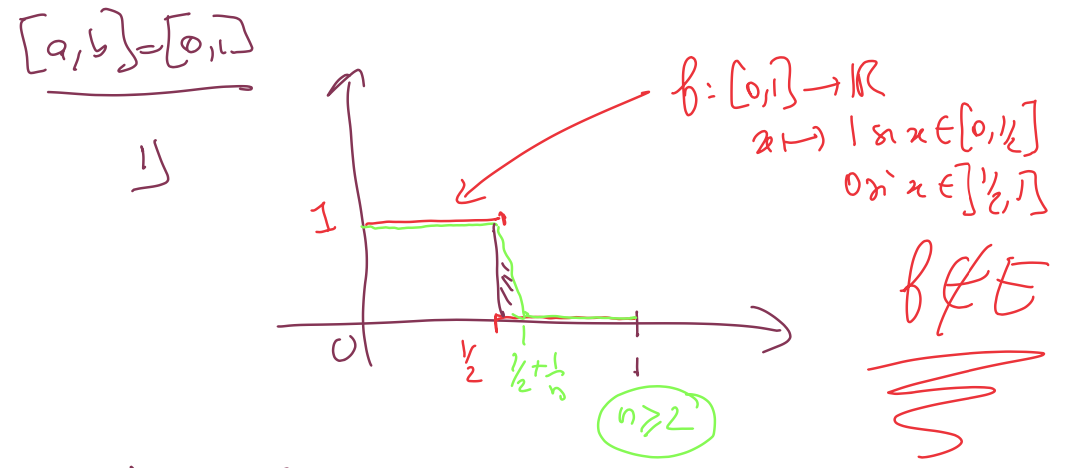 [a,b]=[0,1]
1)
f : [0,1] → ℝ
x ↦ 1 si x ∈ [0, 1/2]
0 si x ∈ ]1/2, 1]
f ∉ E
1
0
1/2
1/2 + 1/n
1
n ≥ 2